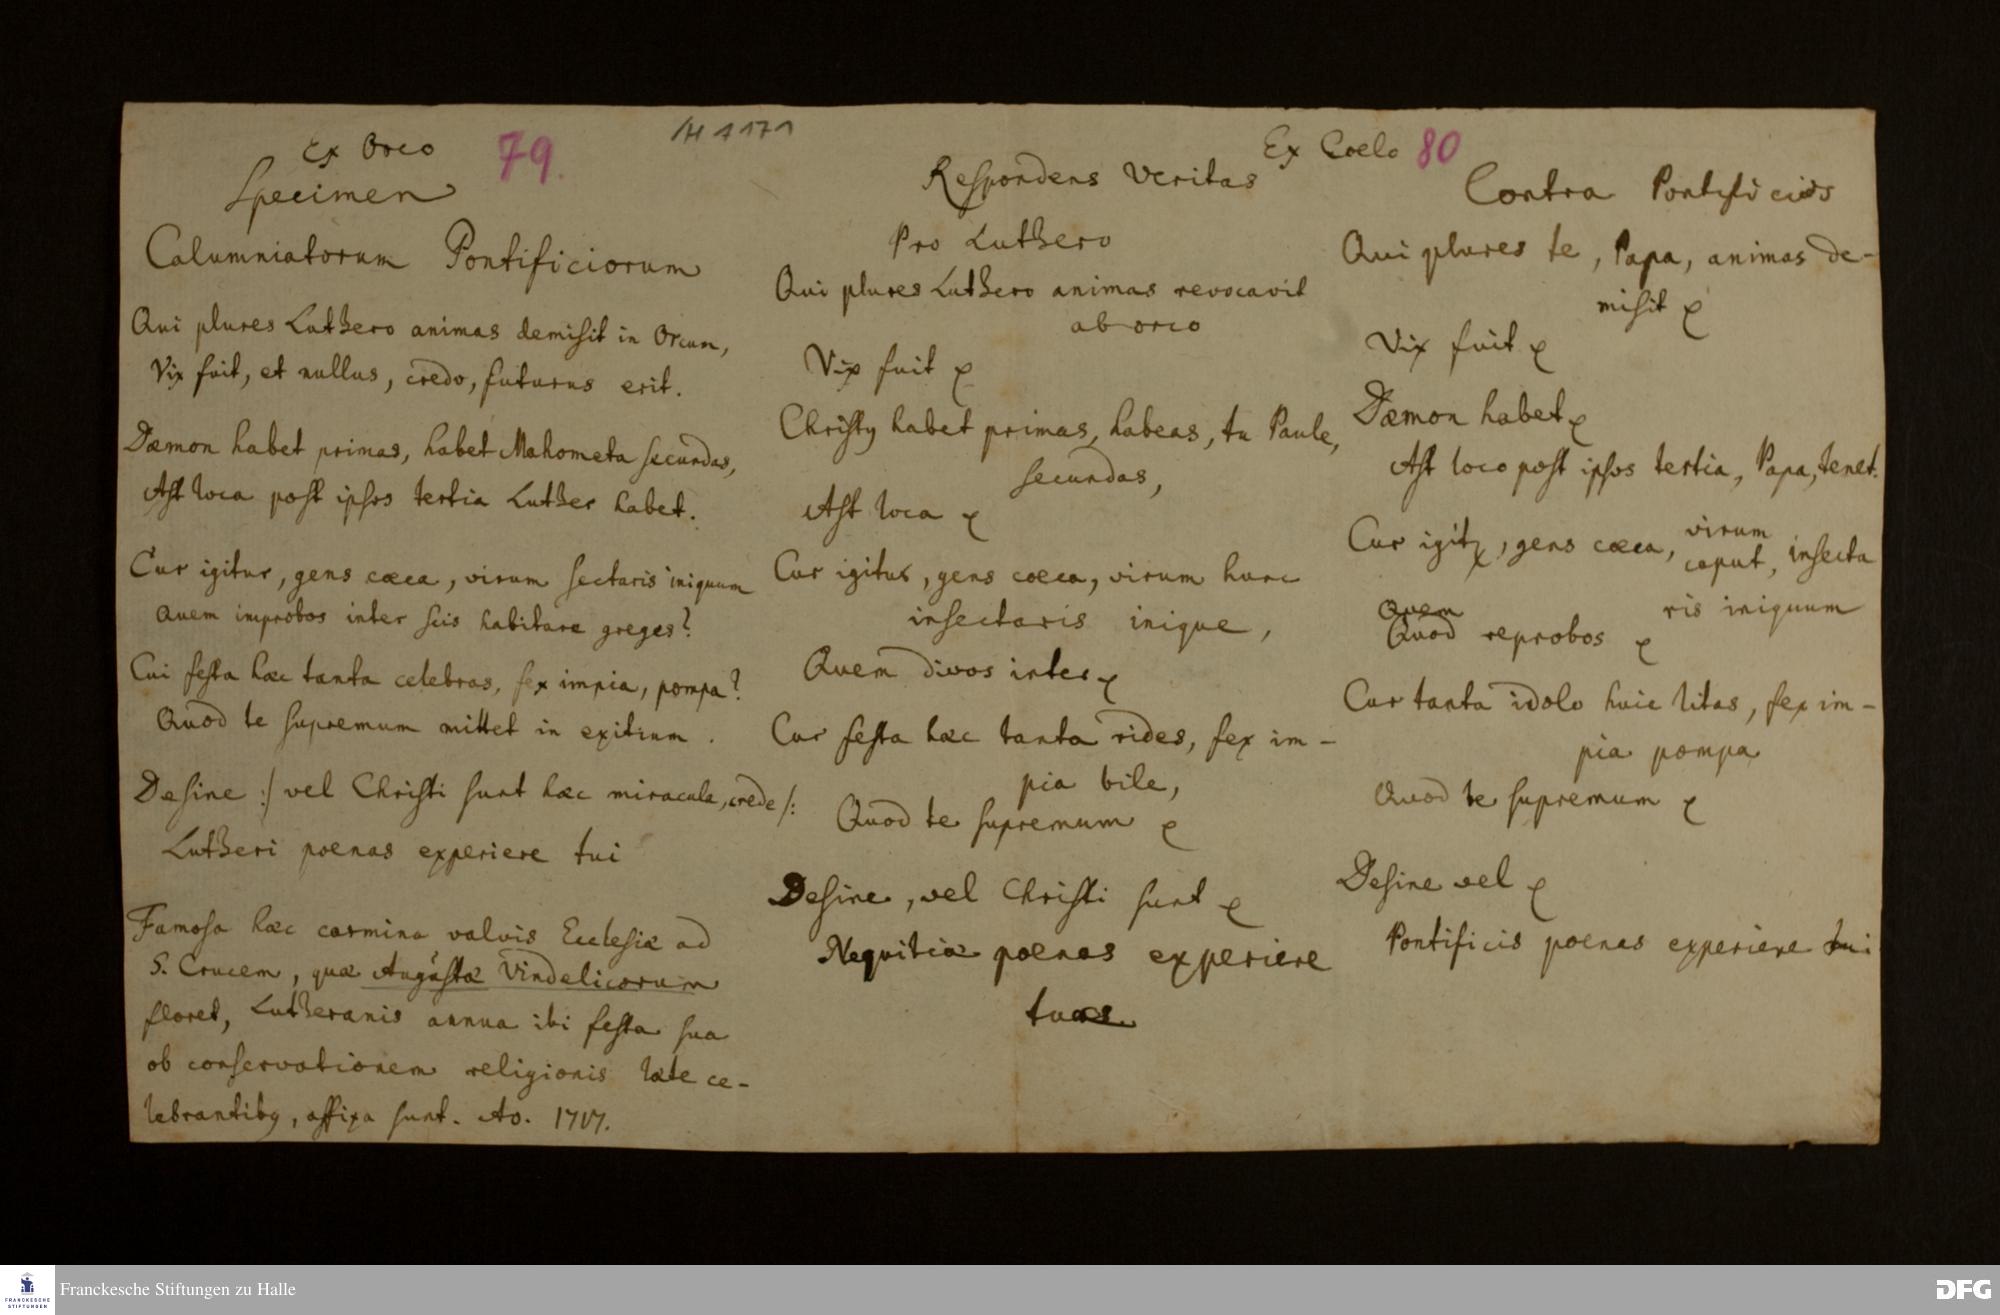 Ex Orco
79.
Specimen
Calumniatorum Pontificiorum
Qui plures Luthero animas demisit in Orcum,
Vix fuit, et nullus, credo, futurus erit.
Dæmon habet primas, habet Mahometa secundas,
Ast loca post ipsos tertia Luther habet.
Cur igitur, gens cæca, virum sectaris iniquum
Quem improbos inter scis habitare greges?
Cui festa hæc tanta celebras, fex impia, pompa?
Quod te supremum mittet in exitium.
Desine :/ vel Christi sunt hæc miracula, crede /:
Lutheri poenas experiere tui
Famosa hæc carmina valvis Ecclesiæ ad
S. Crucem, quæ Augustæ Vindelicorum
floret, Lutheranis annua ibi festa sua
ob conservationem religionis læte ce-
lebrantibꝯ, affixa sunt. Ao. 1717.
/H 1171
Ex Coelo 80
Respondens Veritas
Pro Luthero
Qui plures Luthero animas revocavit
ab orco
Vix fuit ꝛ
Christꝯ habet primas, habeas, tu Paule,
secundas,
Ast loca ꝛ
Cur igitur, gens coeca, virum hunc
insectaris inique,
Quem divos inter ꝛ
Cur festa hæc tanta rides, fex im-
pia bile,
Quod te supremum ꝛ
Desine, vel Christi sunt ꝛ
Nequitiæ poenas experiere
tuæ
Contra Pontificios
Qui plures te, Papa, animas de-
misit ꝛ
Vix fuit ꝛ
Dæmon habet ꝛ
Ast loco post ipsos tertia, Papa, tenet.
Cur igitꝛ, gens cæca, virum
caput, insecta
ris iniquum
Quem
Quod reprobos ꝛ
Cur tanta idolo huic litas, fex im-
pia pompa
Quod te supremum ꝛ
Desine vel ꝛ
Pontificis poenas experiere tui
FRANCKESCHE
STIFTUNGEN
Franckesche Stiftungen zu Halle
DFG